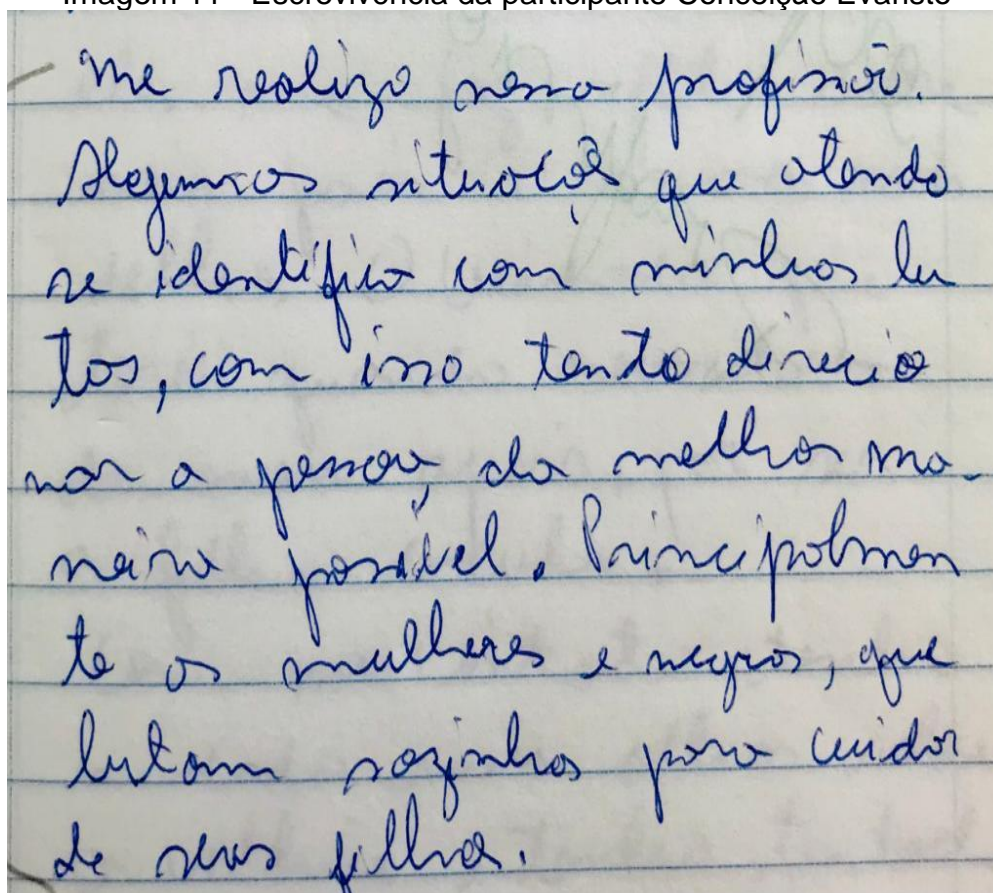 Imagem 11 - Escrevivência da participante Conceição Evaristo
Me realizo nessa profissão.
Algumas situações que atendo
se identifico com minhas lu
tas, com isso tento direcio
nar a pessoa, da melhor ma-
neira possível. Principalmen
te as mulheres e negras, que
lutam sozinhas para cuidar
de seus filhos.